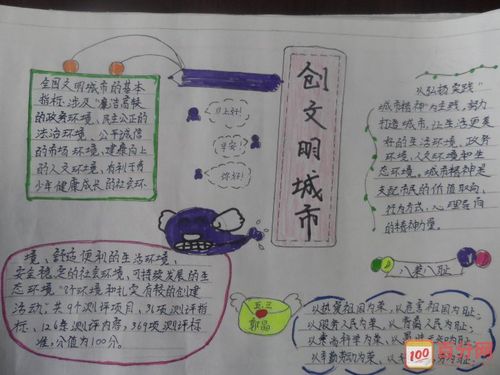 创文明城市
全国文明城市的基本
指标,涉及"廉洁高效
的政务环境、民主公正的
法治环境、公平诚信
的市场环境、健康向上
的人文环境、有利于青
少年健康成长的社会环
境、舒适便利的生活环境、
安全稳定的社会环境、可持续发展的生
态环境"8个环境和扎实有效的创建
活动;共9个测评项目、31项测评指
标、126条测评内容、369项测评标
准,分值为100分。
早上好!
早安!
你好!
以弘扬实践"
城市精神"为主线,努力
打造城市,让生活更美
好的生活环境、政务环
境、人文环境和生
态环境。城市精神是
支配市民的价值取向、
行为方式、心理导向
的精神力量。
八荣八耻
以热爱祖国为荣,以危害祖国为耻;
以服务人民为荣,以背离人民为耻;
以崇尚科学为荣,以愚昧无知为耻;
以辛勤劳动为荣,以
五三
100
百分网